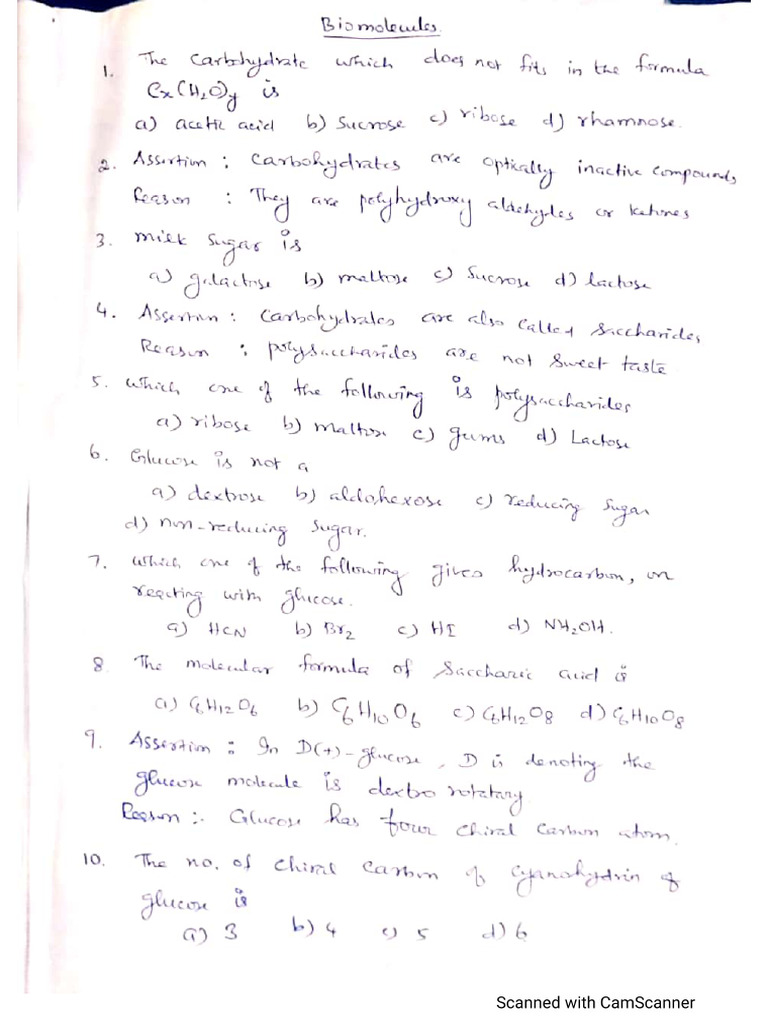 Biomolecules.
1. The carbohydrate which does not fits in the formula
Cx(H2O)y is
a) acetic acid b) sucrose c) ribose d) rhamnose.
2. Assertion : Carbohydrates are optically inactive compounds
Reason : They are polyhydroxy aldehydes or ketones
3. milk sugar is
a) galactose b) maltose c) sucrose d) lactose
4. Assertion : Carbohydrates are also called saccharides,
Reason : polysaccharides are not sweet taste
5. which one of the following is polysaccharides
a) ribose b) maltose c) gums d) Lactose
6. Glucose is not a
a) dextrose b) aldohexose c) reducing sugar
d) non-reducing sugar.
7. which one of the following gives hydrocarbon, on
reacting with glucose.
a) HCN b) Br2 c) HI d) NH2OH.
8. The molecular formula of Saccharic acid is
a) C6H12O6 b) C6H10O6 c) C6H12O8 d) C6H10O8
9. Assertion : In D(+)-glucose, D is denoting the
glucose molecule is dextro rotatory
Reason :. Glucose has four chiral carbon atom.
10. The no. of chiral carbon of cyanohydrin of
glucose is
a) 3 b) 4 c) 5 d) 6
Scanned with CamScanner